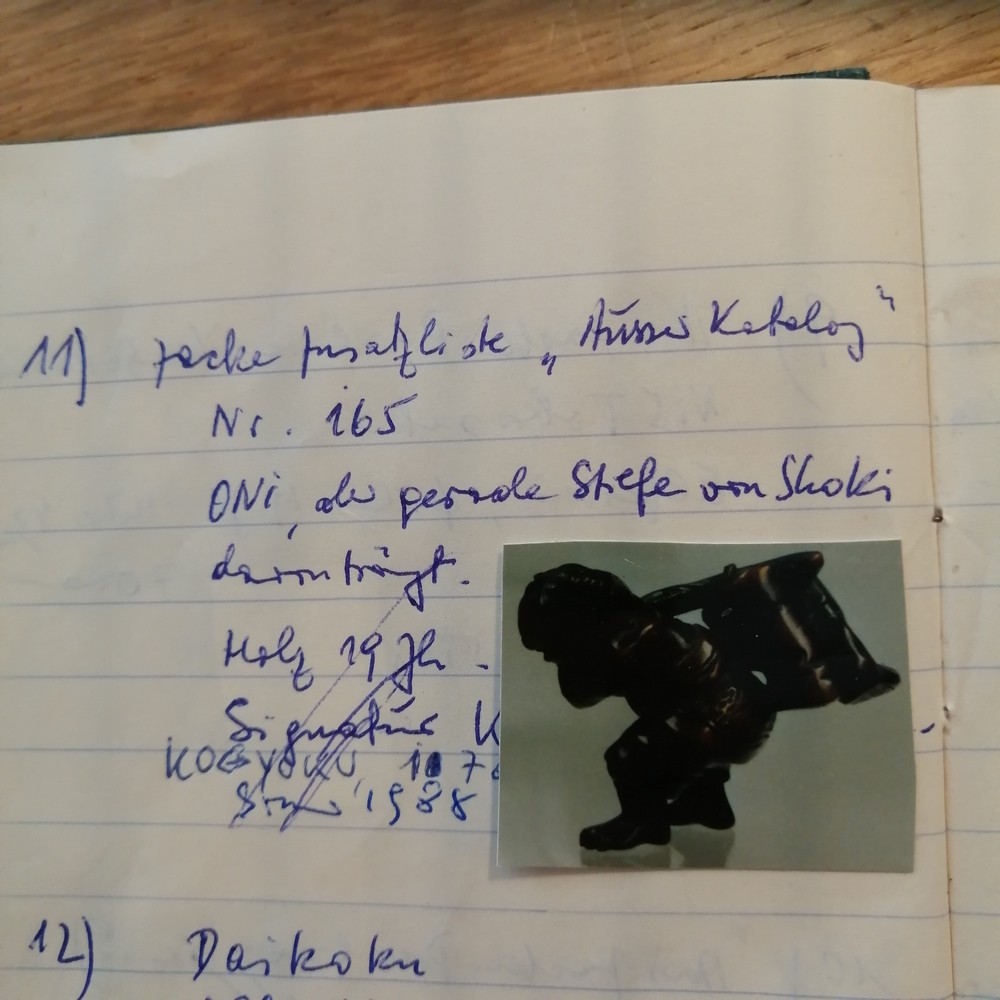 11) Jacke Zusatzliste „Ausser Katalog"
Nr. 165
ONi, der gerade Stiefe von Shoki
davonträgt.
Holz 19 Jh.
Signatur K
KOGYOKU,
1988
12) Daikoku